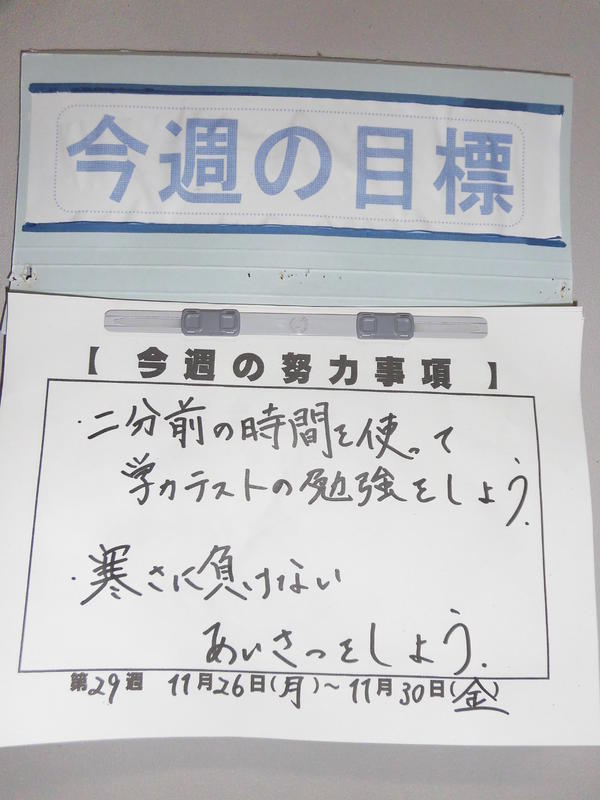 今週の目標
【 今週の努力事項 】
・二分前の時間を使って
学力テストの勉強をしよう.
・寒さに負けない
あいさつをしよう.
第29週 11月26日(月)～11月30日(金)